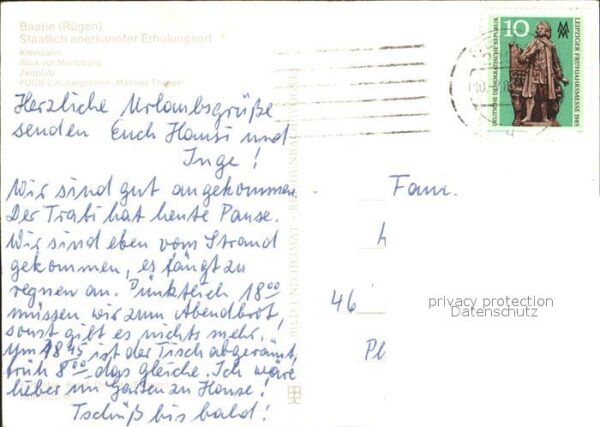 Baabe (Rügen)
Staatlich anerkannter Erholungsort
Kleinbahn
Blick zur Moritzburg
Zeltplatz
FDGB-Erholungsheim
Herzliche Urlaubsgrüße
senden Euch Hansi und
Inge!
Wir sind gut angekommen.
Der Trabi hat heute Pause.
Wir sind eben vom Strand
gekommen, es fängt zu
regnen an. Pünktlich 18⁰⁰
müssen wir zum Abendbrot,
sonst gibt es nichts mehr.
Um 18 45 ist der Tisch abgeräumt,
früh 8⁰⁰ das gleiche. Ich wäre
lieber im Garten zu Hause!
Tschüß bis bald!
BILD UND HEIMAT
10
MM
LEIPZIGER FRÜHJAHRSMESSE 1985
DEUTSCHE DEMOKRATISCHE REPUBLIK
Fam.
46
privacy protection
Datenschutz